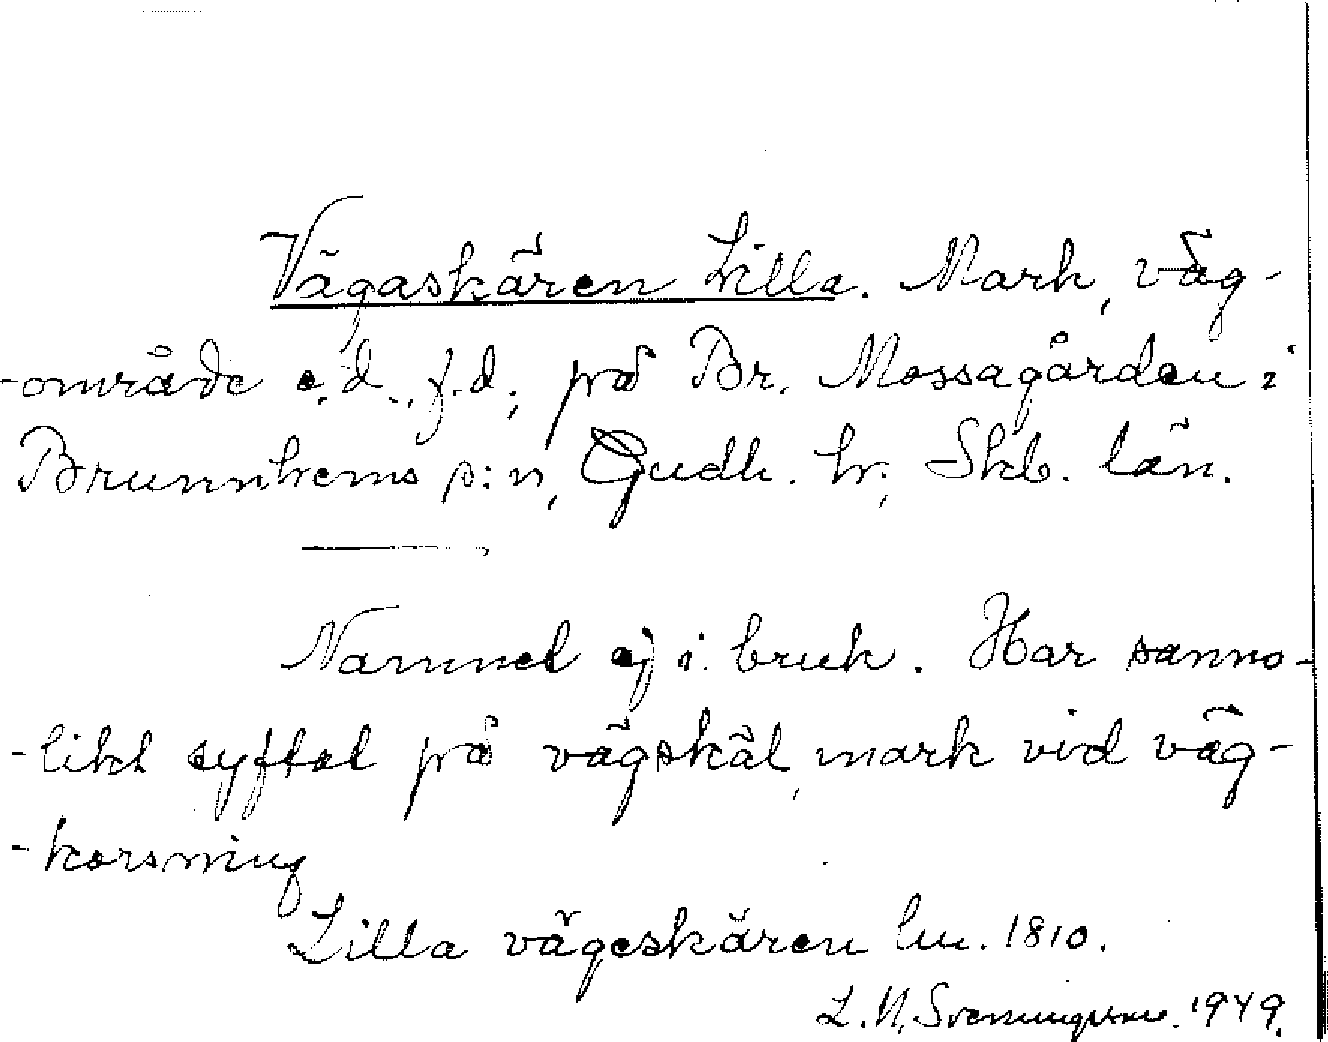 Vägaskären Lilla. Mark, väg-
-område o.d., f.d., på Br. Mossagården i
Brunnhems s:n, Gudh. hr; Skb. län.
Namnet ej i bruk. Har sanno-
-likt syftat på vägskäl, mark vid väg-
-korsning
Lilla vägeskären lm. 1810.
L. N. Svenningsson. 1949.